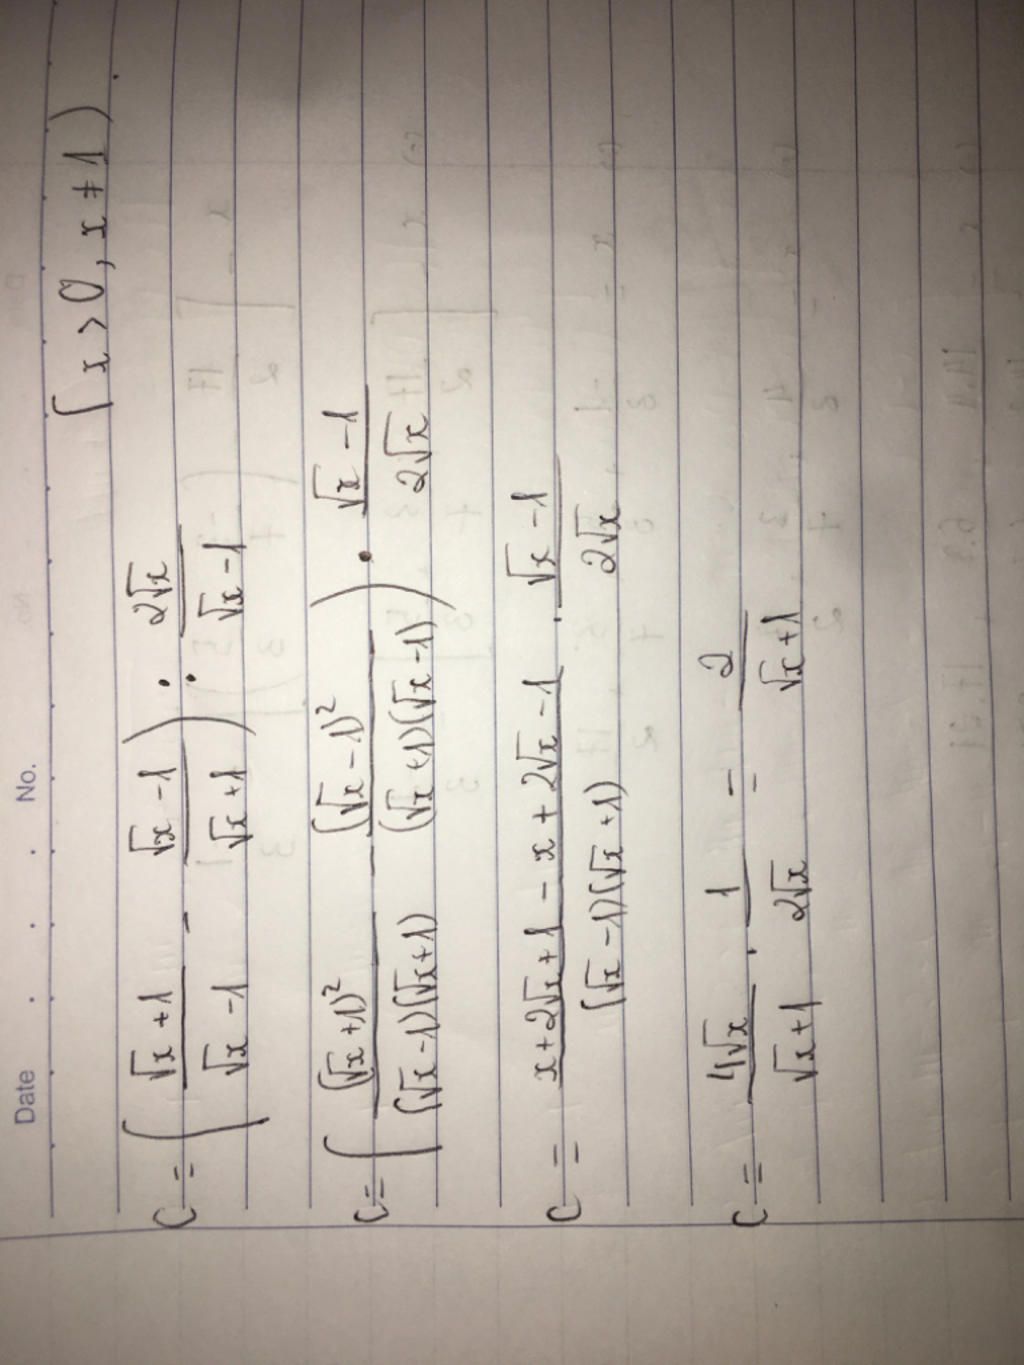 Date . . . No.
(x > 0, x ≠ 1).
C = ( (√x + 1)/(√x - 1) - (√x - 1)/(√x + 1) ) : 2√x/(√x - 1)
C = ( (√x + 1)²/((√x - 1)(√x + 1)) - (√x - 1)²/((√x + 1)(√x - 1)) ) . (√x - 1)/(2√x)
C = (x + 2√x + 1 - x + 2√x - 1)/((√x - 1)(√x + 1)) . (√x - 1)/(2√x)
C = 4√x/(√x + 1) . 1/(2√x) = 2/(√x + 1)